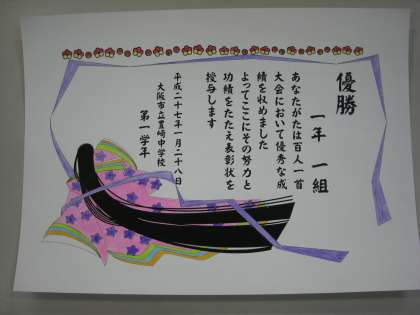 優勝
一年 一組
あなたがたは百人一首
大会において優秀な成
績を収めました
よってここにその努力と
功績をたたえ表彰状を
授与します
平成二十七年一月二十八日
大阪市立豊崎中学校
第一学年